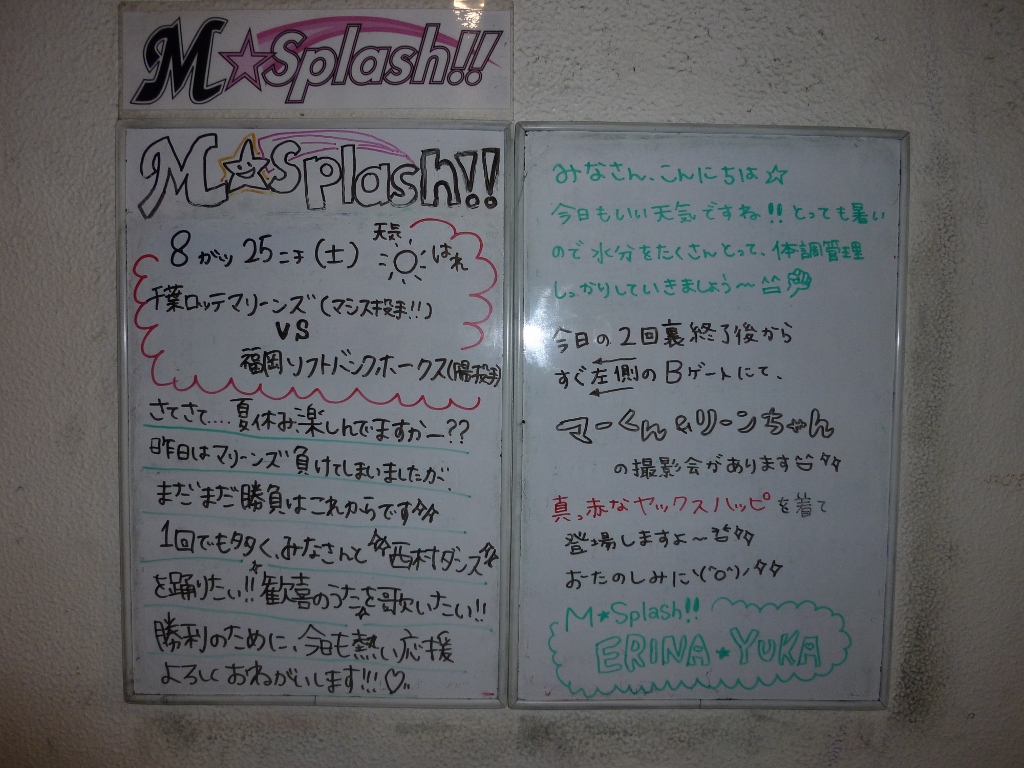 M☆Splash!!
M☆Splash!!
8がつ25にち(土) 天気 はれ
千葉ロッテマリーンズ(マシス投手!!)
VS
福岡ソフトバンクホークス(陽投手)
さてさて....夏休み楽しんでますかー??
昨日はマリーンズ負けてしまいましたが、
まだまだ勝負はこれからです
1回でも多く、みなさんと"西村ダンス"
を踊りたい!!歓喜のうたを歌いたい!!
勝利のために、今日も熱い応援
よろしくおねがいします!!!♡
みなさん、こんにちは☆
今日もいい天気ですね!!とっても暑い
ので水分をたくさんとって、体調管理
しっかりしていきましょう〜
今日の2回裏終了後から
すぐ左側のBゲートにて、
マーくん&リーンちゃん
の撮影会があります
真っ赤なヤックスハッピを着て
登場しますよ〜
おたのしみに\(^o^)/
M★Splash!!
ERINA★YUKA